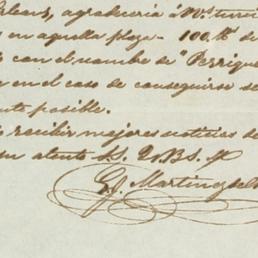 agradeceria á V.
en aquella plaza - 100.
con el nombre de "Perrique
en el caso de conseguirse se
posible.
recibir mejores noticias de
su atento S.S. Q.B.S.M.
G. Martinez del